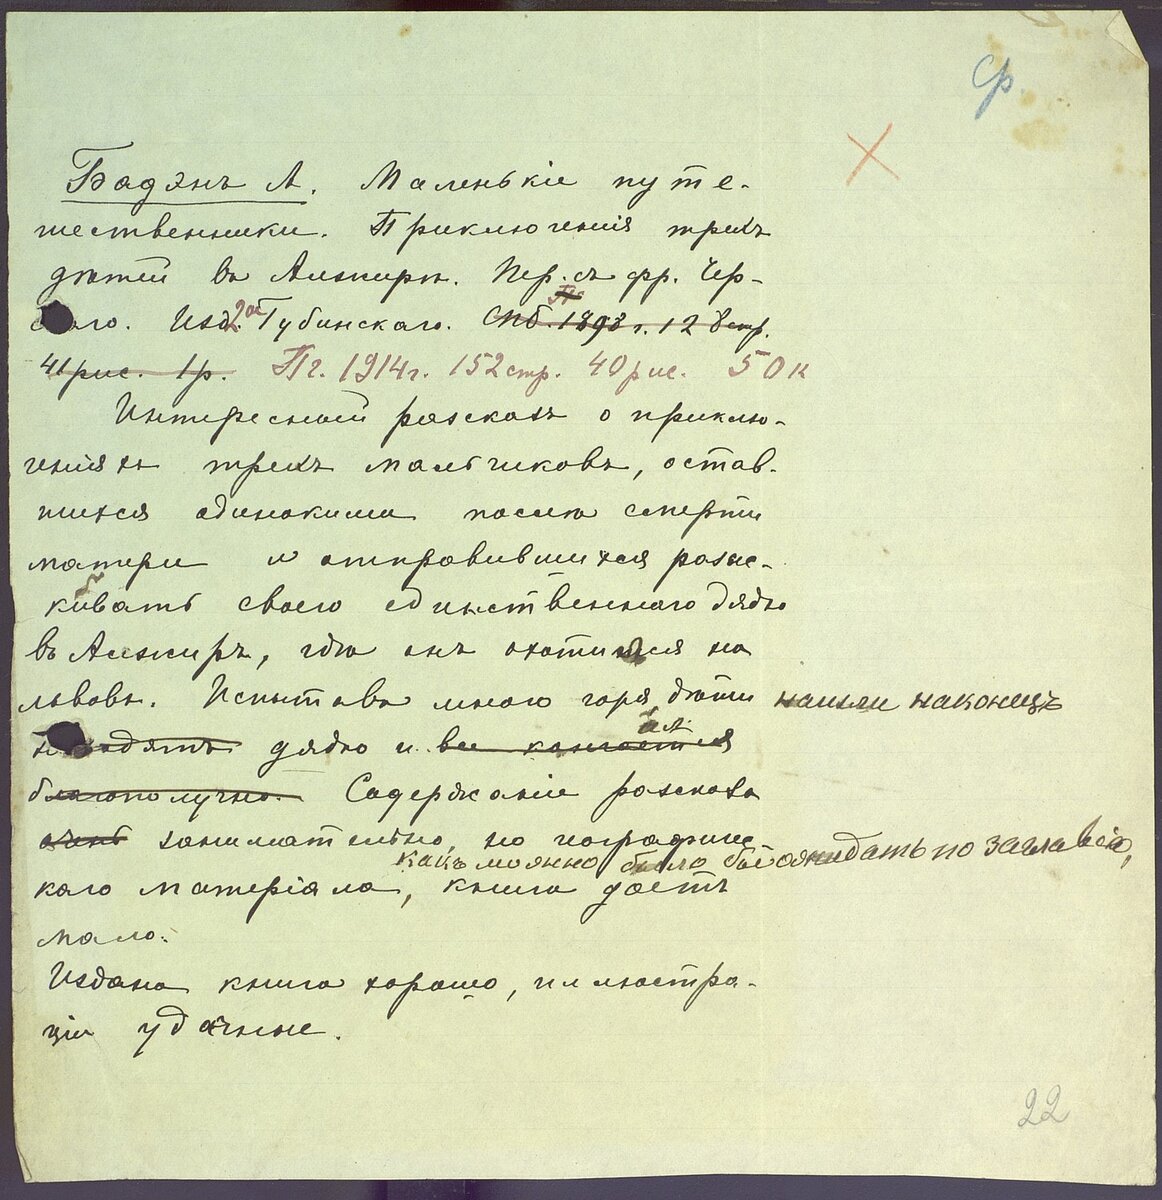 Ср.
Бадэнъ А. Маленькіе путе-
шественники. Приключенія трехъ
дѣтей въ Алжирѣ. Пер. съ фр. Чер-
скаго. Изд. 2ое Губинскаго. Спб. 1898 г. 128 стр.
41 рис. 1 р. Пг. 1914 г. 152 стр. 40 рис. 50 к
Интересный разсказъ о приклю-
ченіяхъ трехъ мальчиковъ, остав-
шихся одинокими послѣ смерти
матери и отправившихся разыс-
кивать своего единственнаго дядю
въ Алжиръ, гдѣ онъ охотился на
львовъ. Испытавъ много горя, дѣти нашли наконецъ
находятъ дядю и все кончается
благополучно. Содержаніе разсказа
очень занимательно, но географичес-
какъ можно было бы ожидать по заглавію,
каго матеріала, книга даетъ
мало.
Издана книга хорошо, иллюстра-
ціи удачныя.
22